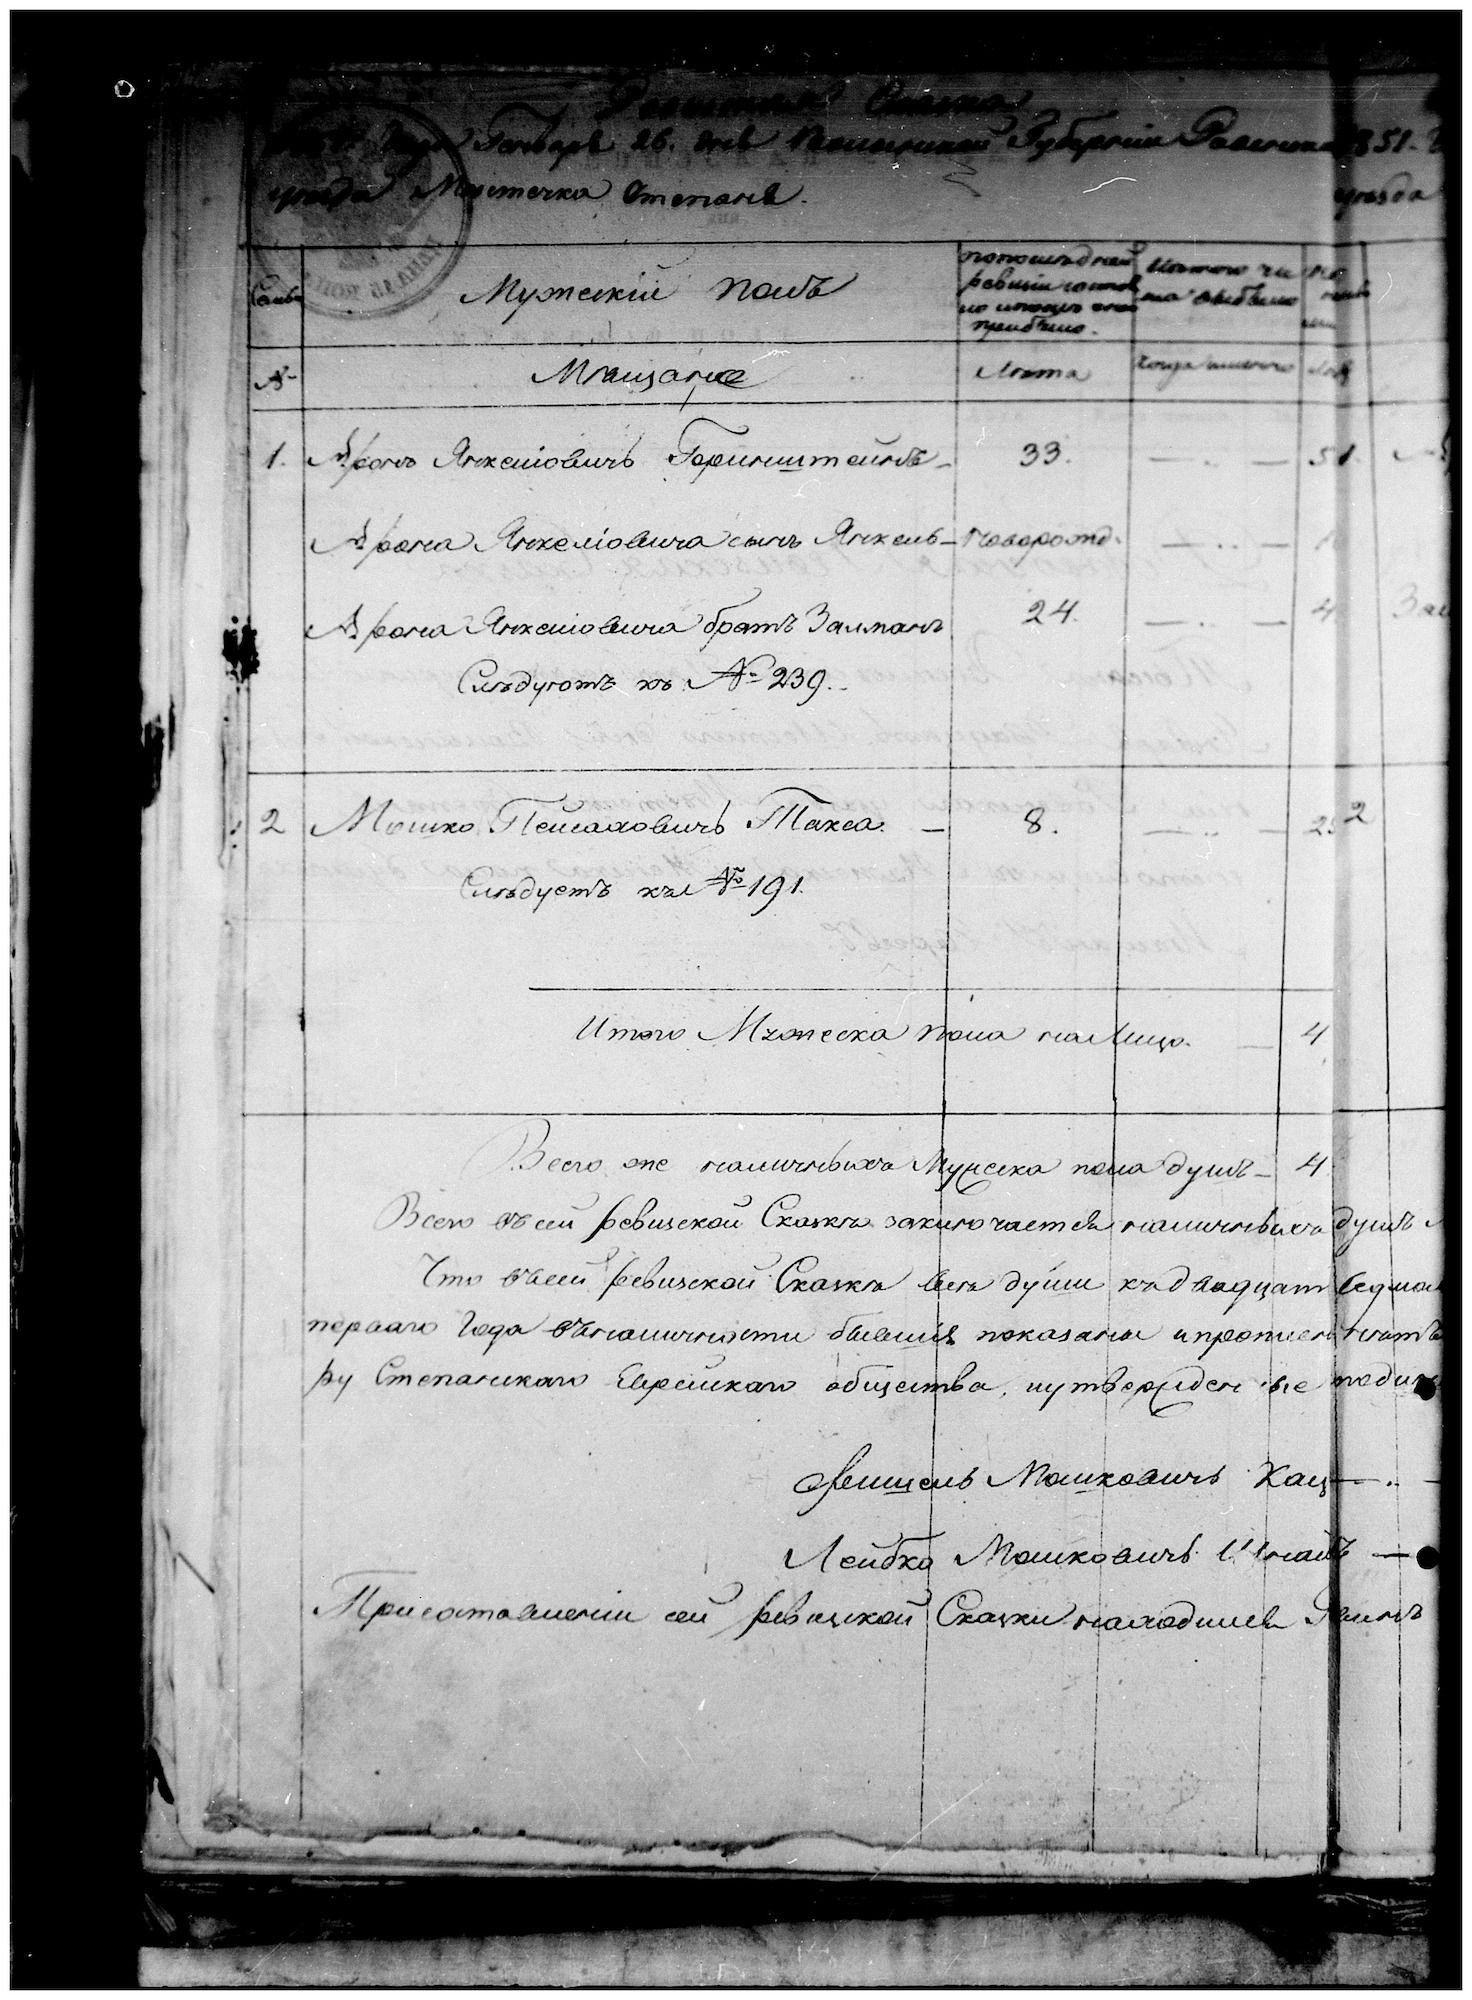 Ревизская Сказка
Года Генваря 26. дня Волынской Губернии Ровенска 1851.
уезда Местечка Степаня. уезда
Семьи Мужескій полъ
попоследней
ревизіи состоя
ло ипосле того
прибыло.
Изтого чи
сла выбыло
№ Мещане Лета Когда именно
1. Аронъ Янкеліовичъ Горинштейнъ - 33. — „ — 51.
Арона Янкеліовича сынъ Янкель - Новорожд. — „ — 1
Арона Янкеліовича братъ Залманъ 24. — „ — 4 Зал
Следуютъ къ № 239.
2 Мошко Пейсаховичъ Такса. — 8. — „ — 25 2
Следуетъ къ № 191.
Итого Мужеска пола налицо. — 4
Всего же наличныхъ Мужеска пола душъ — 4
Всего въсей ревизской Сказке заключается наличныхъ душъ
Что въсей ревизской Сказке все души къдвадцать седмо
перваго Года въналичности бывшія показаны
ру Степанскаго Еврейскаго общества, иутвержденные
Мошковичъ Кац — „ —
Лейбко Мошковичъ —
Присоставленіи сей ревизской Сказки находился